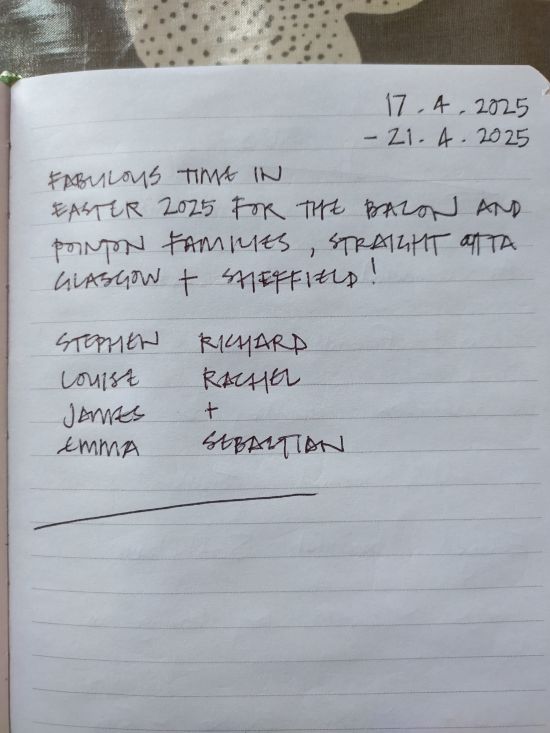 17.4.2025
- 21.4.2025
FABULOUS TIME IN
EASTER 2025 FOR THE BACON AND
POINTON FAMILIES, STRAIGHT OTTA
GLASGOW + SHEFFIELD!
STEPHEN RICHARD
LOUISE RACHEL
JAMES +
EMMA SEBASTIAN